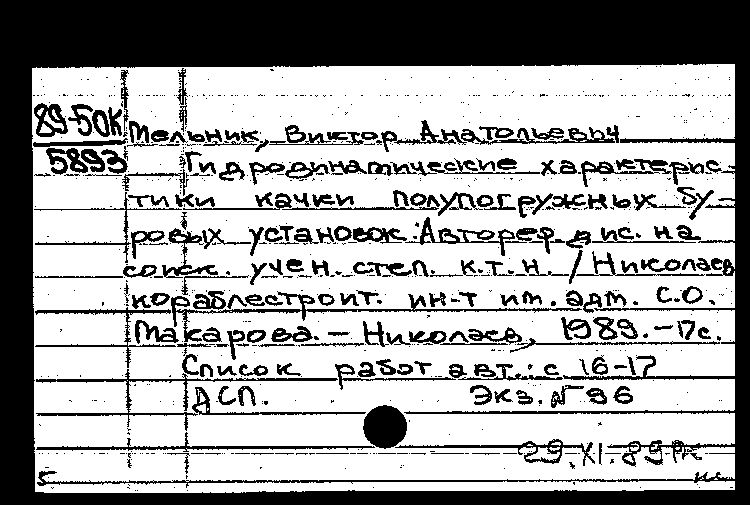 89-50К Мельник, Виктор Анатольевич
5893 Гидродинамические характерис-
тики качки полупогружных бу-
ровых установок: Автореф. дис. на
соиск. учен. степ. к.т.н. / Николаев.
кораблестроит. ин-т им. адм. С.О.
Макарова. – Николаев, 1989. – 17с.
Список работ авт.: с. 16-17
ДСП. Экз. № 96
29.XI.89
5